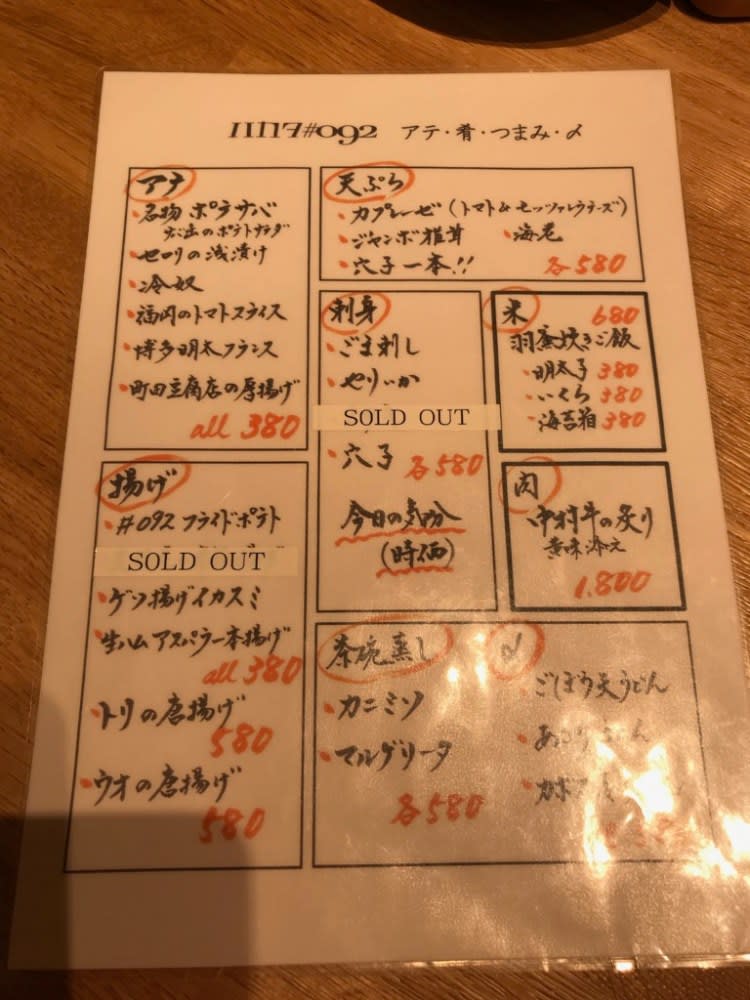 #092 アテ・肴・つまみ・〆
アテ
・名物 ポテサバ
・セロリの浅漬け
・冷奴
・福岡のトマトスライス
・博多明太フランス
・町田豆腐店の厚揚げ
all 380
揚げ
・#092 フライドポテト
SOLD OUT
・ゲソ揚げイカスミ
・生ハムアスパラ一本揚げ
all 380
・トリの唐揚げ
580
・ウオの唐揚げ
580
天ぷら
・カプレーゼ(トマト&モッツァレラチーズ)
・ジャンボ椎茸 ・海老
・穴子一本!! 各580
刺身
・ごま刺し
・やりいか
SOLD OUT
・穴子 各580
今日の気分
(時価)
米 680
羽釜炊きご飯
・明太子 380
・いくら 380
・海苔箱 380
肉
・中村牛の炙り
黄味添え
1.800
茶碗蒸し
・カニミソ
・マルゲリータ
各580
〆
・ごぼう天うどん